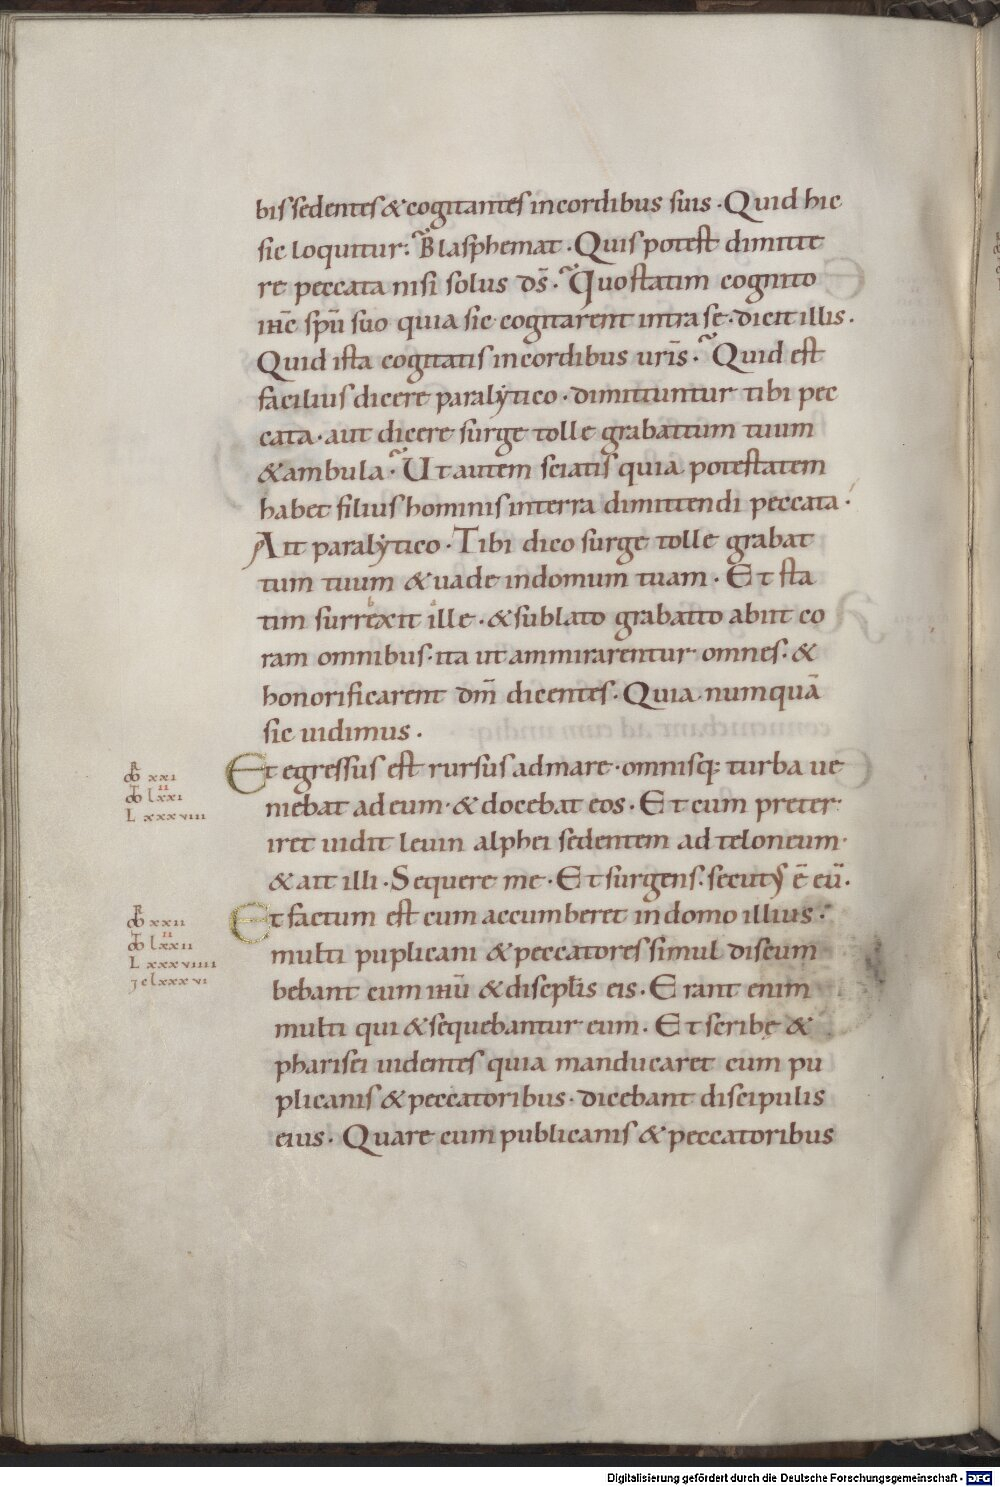 bis sedentes & cogitantes in cordibus suis · Quid hic
sic loquitur? Blasphemat · Quis potest dimitte
re peccata nisi solus ds̄? Quo statim cognito
ihc̄ spū suo quia sic cogitarent intra se · dicit illis ·
Quid ista cogitatis in cordibus uris̄? Quid est
facilius dicere paralẏtico · dimittuntur tibi pec
cata · aut dicere surge tolle grabattum tuum
& ambula? Ut autem sciatis quia potestatem
habet filius hominis in terra dimittendi peccata ·
Ait paralẏtico · Tibi dico surge tolle grabat
tum tuum & uade in domum tuam · Et sta
tim surrexit ille · & sublato grabatto abiit co
ram omnibus · ita ut ammirarentur omnes · &
honorificarent dm̄ dicentes · Quia numquā
sic uidimus ·
Et egressus est rursus ad mare · omnisq; turba ue
niebat ad eum · & docebat eos · Et cum preter
iret uidit leuin alphei sedentem ad teloneum ·
& ait illi · Sequere me · Et surgens · secutꝰ ē eū ·
Et factum est cum accumberet in domo illius ·
multi puplicani & peccatores simul discum
bebant cum ihū & discipłis eis · Erant enim
multi qui & sequebantur eum · Et scribę &
pharisei uidentes quia manducaret cum pu
plicanis & peccatoribus · dicebant discipulis
eius · Quare cum publicanis & peccatoribus
R
xxi
II
lxxi
L xxxviii
R
xxii
II
lxxii
L xxxviiii
lxxxvi
Digitalisierung gefördert durch die Deutsche Forschungsgemeinschaft - DFG